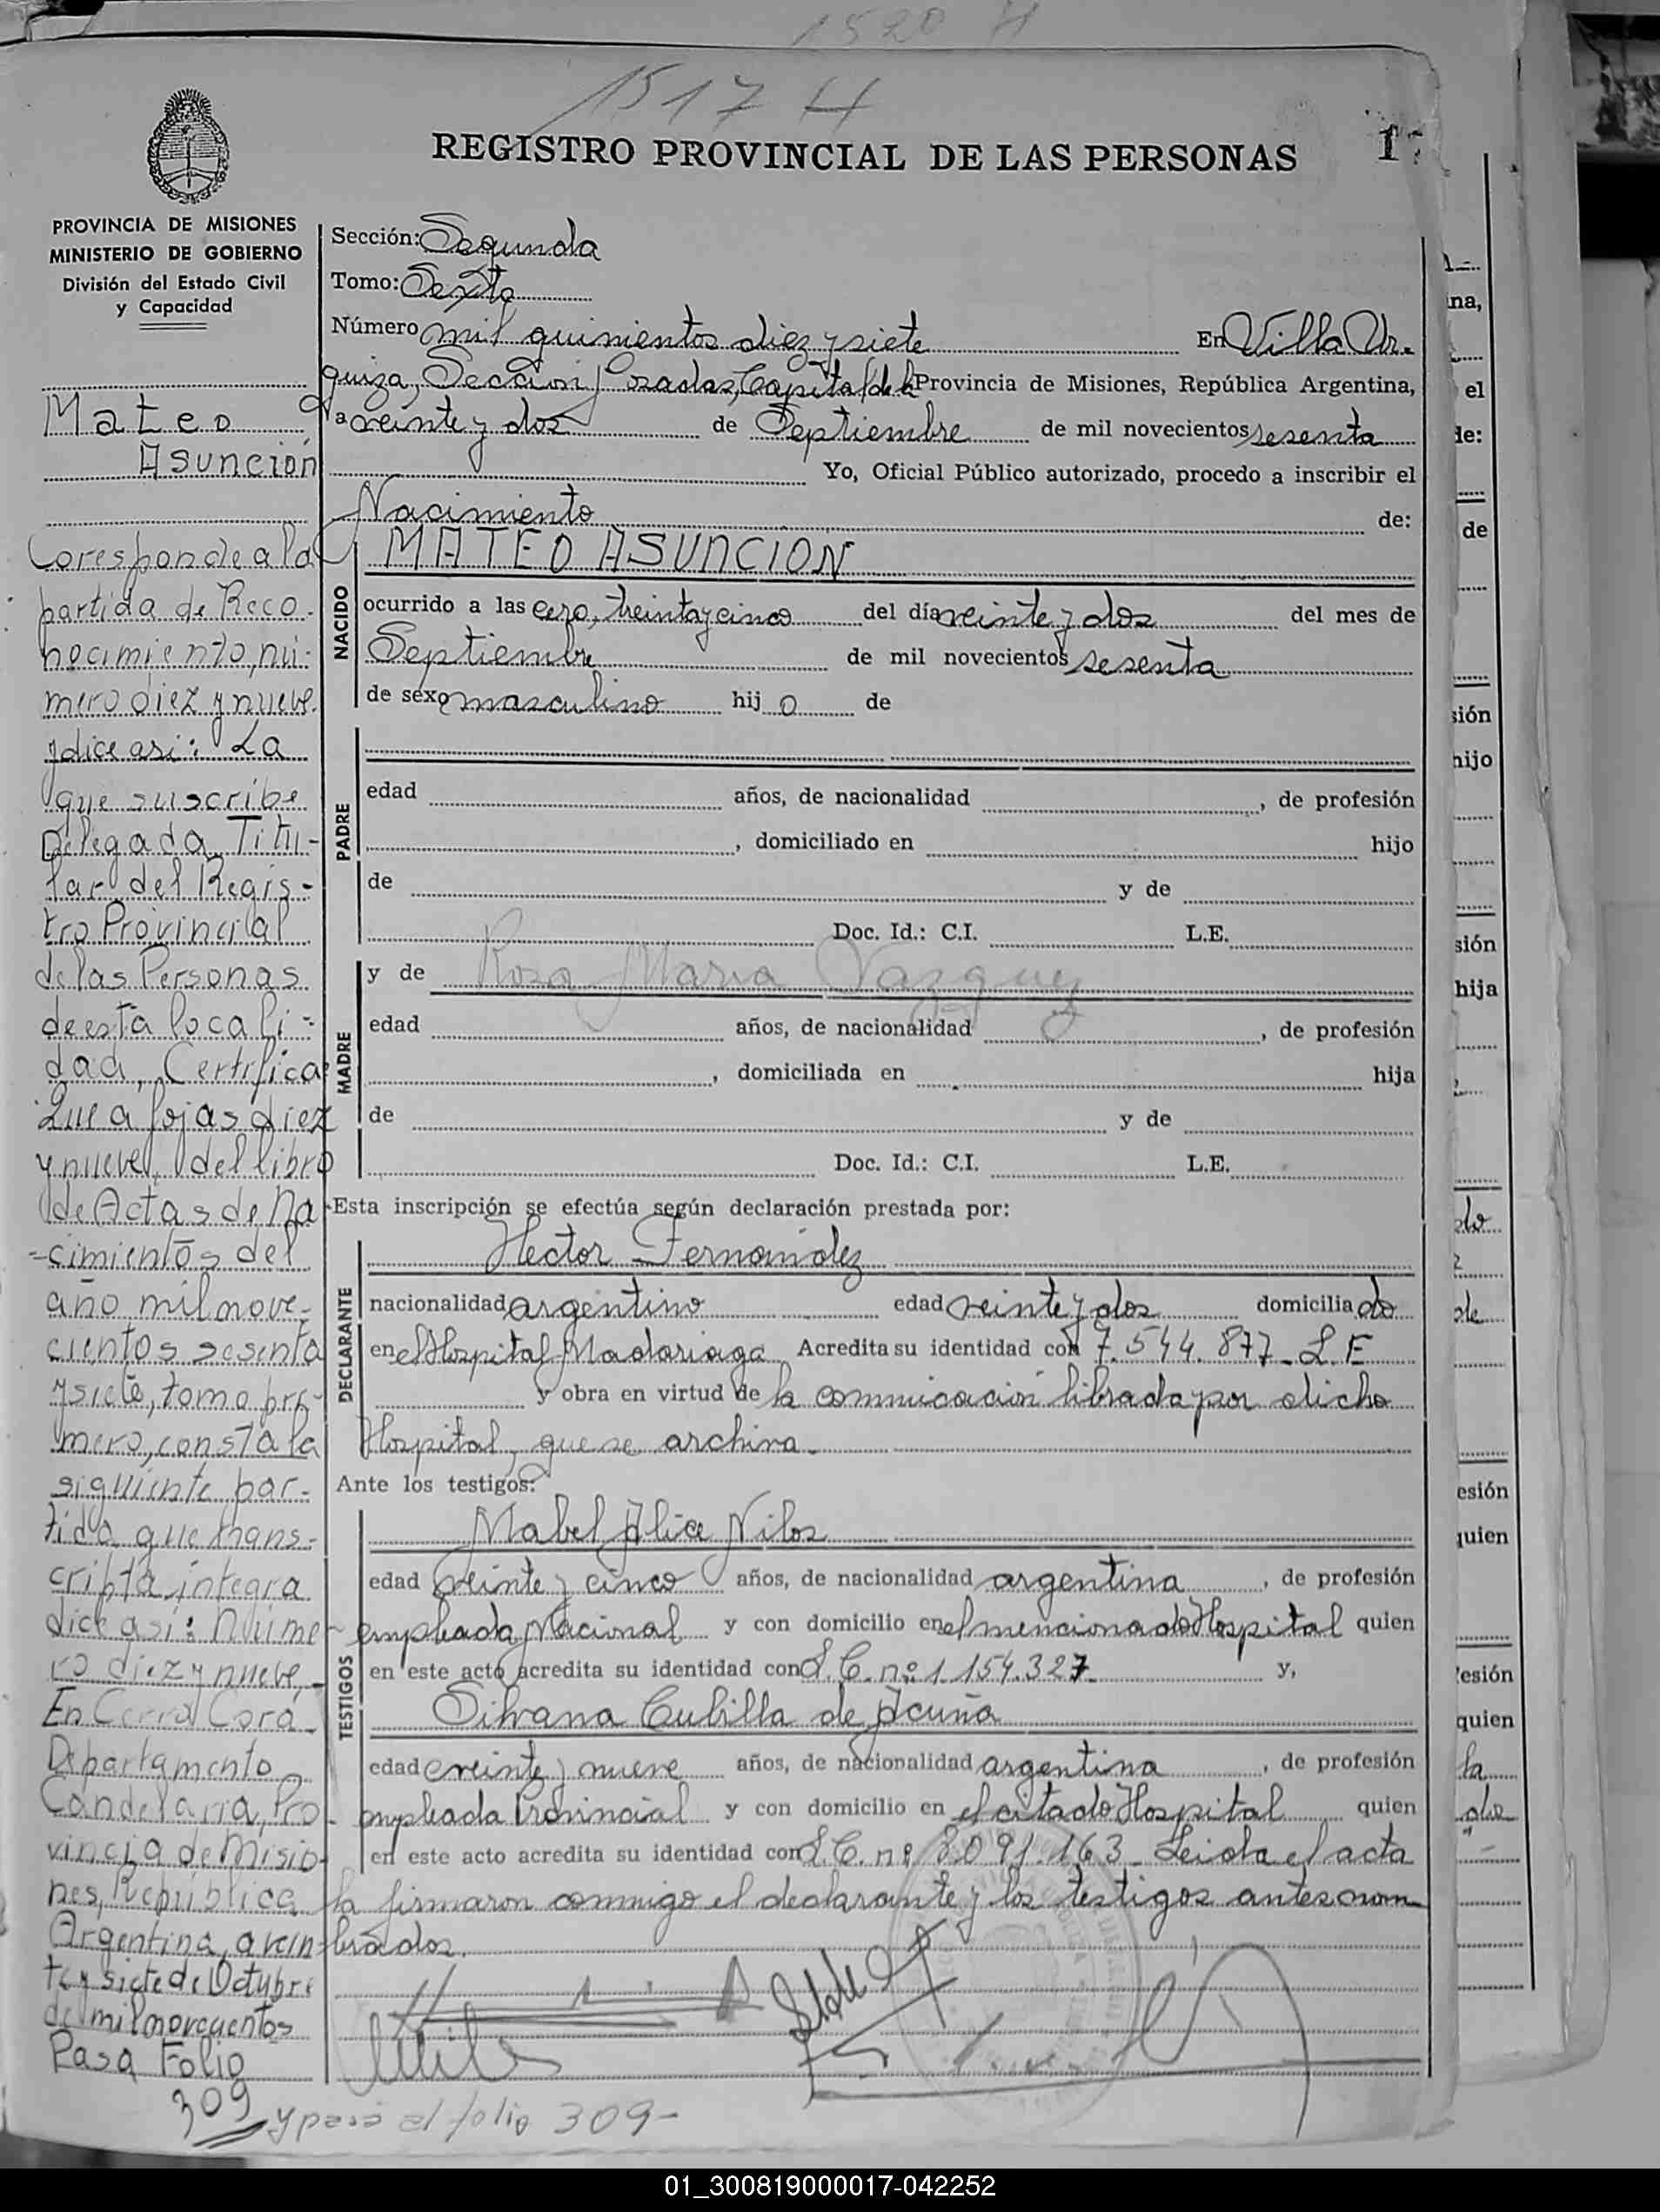 1520 H
1517 H
REGISTRO PROVINCIAL DE LAS PERSONAS
PROVINCIA DE MISIONES
MINISTERIO DE GOBIERNO
División del Estado Civil
y Capacidad
Mateo
Asunción
Corresponde a la
partida de Reco-
nocimiento, nú-
mero diez y nueve.
y dice asi: La
que suscribe
Delegada Titu-
lar del Regis-
tro Provincial
de las Personas
de esta locali-
dad, Certifica:
Que a fojas diez
y nueve, del libro
de Actas de Na
-cimientos del
año mil nove-
cientos sesenta
y siete, tomo pri-
mero, consta la
siguiente par-
tida que trans-
cripta integra
dice asi: Núme-
ro diez y nueve,-
En Cerro Corá-
Departamento
Candelaria, Pro-
vincia de Misio-
nes, República
Argentina, a vein-
te y siete de Octubre
de mil novecientos
Pasa Folio
309
y pasa al folio 309-
Sección: Segunda
Tomo: Sexto
Número mil quinientos diez y siete En Villa Ur-
quiza, Sección Posadas, Capital de la Provincia de Misiones, República Argentina,
a veinte y dos de Septiembre de mil novecientos sesenta
Yo, Oficial Público autorizado, procedo a inscribir el
Nacimiento de:
NACIDO
MATEO ASUNCION
ocurrido a las cero, treinta y cinco del día veinte y dos del mes de
Septiembre de mil novecientos sesenta
de sexo masculino hijo de
PADRE
edad años, de nacionalidad , de profesión
, domiciliado en hijo
de y de
Doc. Id.: C.I. L.E.
MADRE
y de Rosa Maria Vazquez
edad años, de nacionalidad , de profesión
, domiciliada en hija
de y de
Doc. Id.: C.I. L.E.
Esta inscripción se efectúa según declaración prestada por:
DECLARANTE
Hector Fernandez
nacionalidad argentino edad veinte y dos domiciliado
en el Hospital Madariaga Acredita su identidad con 7.544.877-L.E
y obra en virtud de la comunicación librada por dicho
Hospital, que se archiva.
Ante los testigos:
TESTIGOS
Mabel Alice Nilos
edad veinte y cinco años, de nacionalidad argentina, de profesión
empleada Nacional y con domicilio en el mencionado Hospital quien
en este acto acredita su identidad con L.C. nº 1.154.327 y,
Silvana Cubilla de Acuña
edad veinte y nueve años, de nacionalidad argentina, de profesión
empleada Provincial y con domicilio en el citado Hospital quien
en este acto acredita su identidad con L.C. nº 8.091.163 Leida el acta
la firmaron conmigo el declarante y los testigos antes nom
brados.
01_300819000017-042252